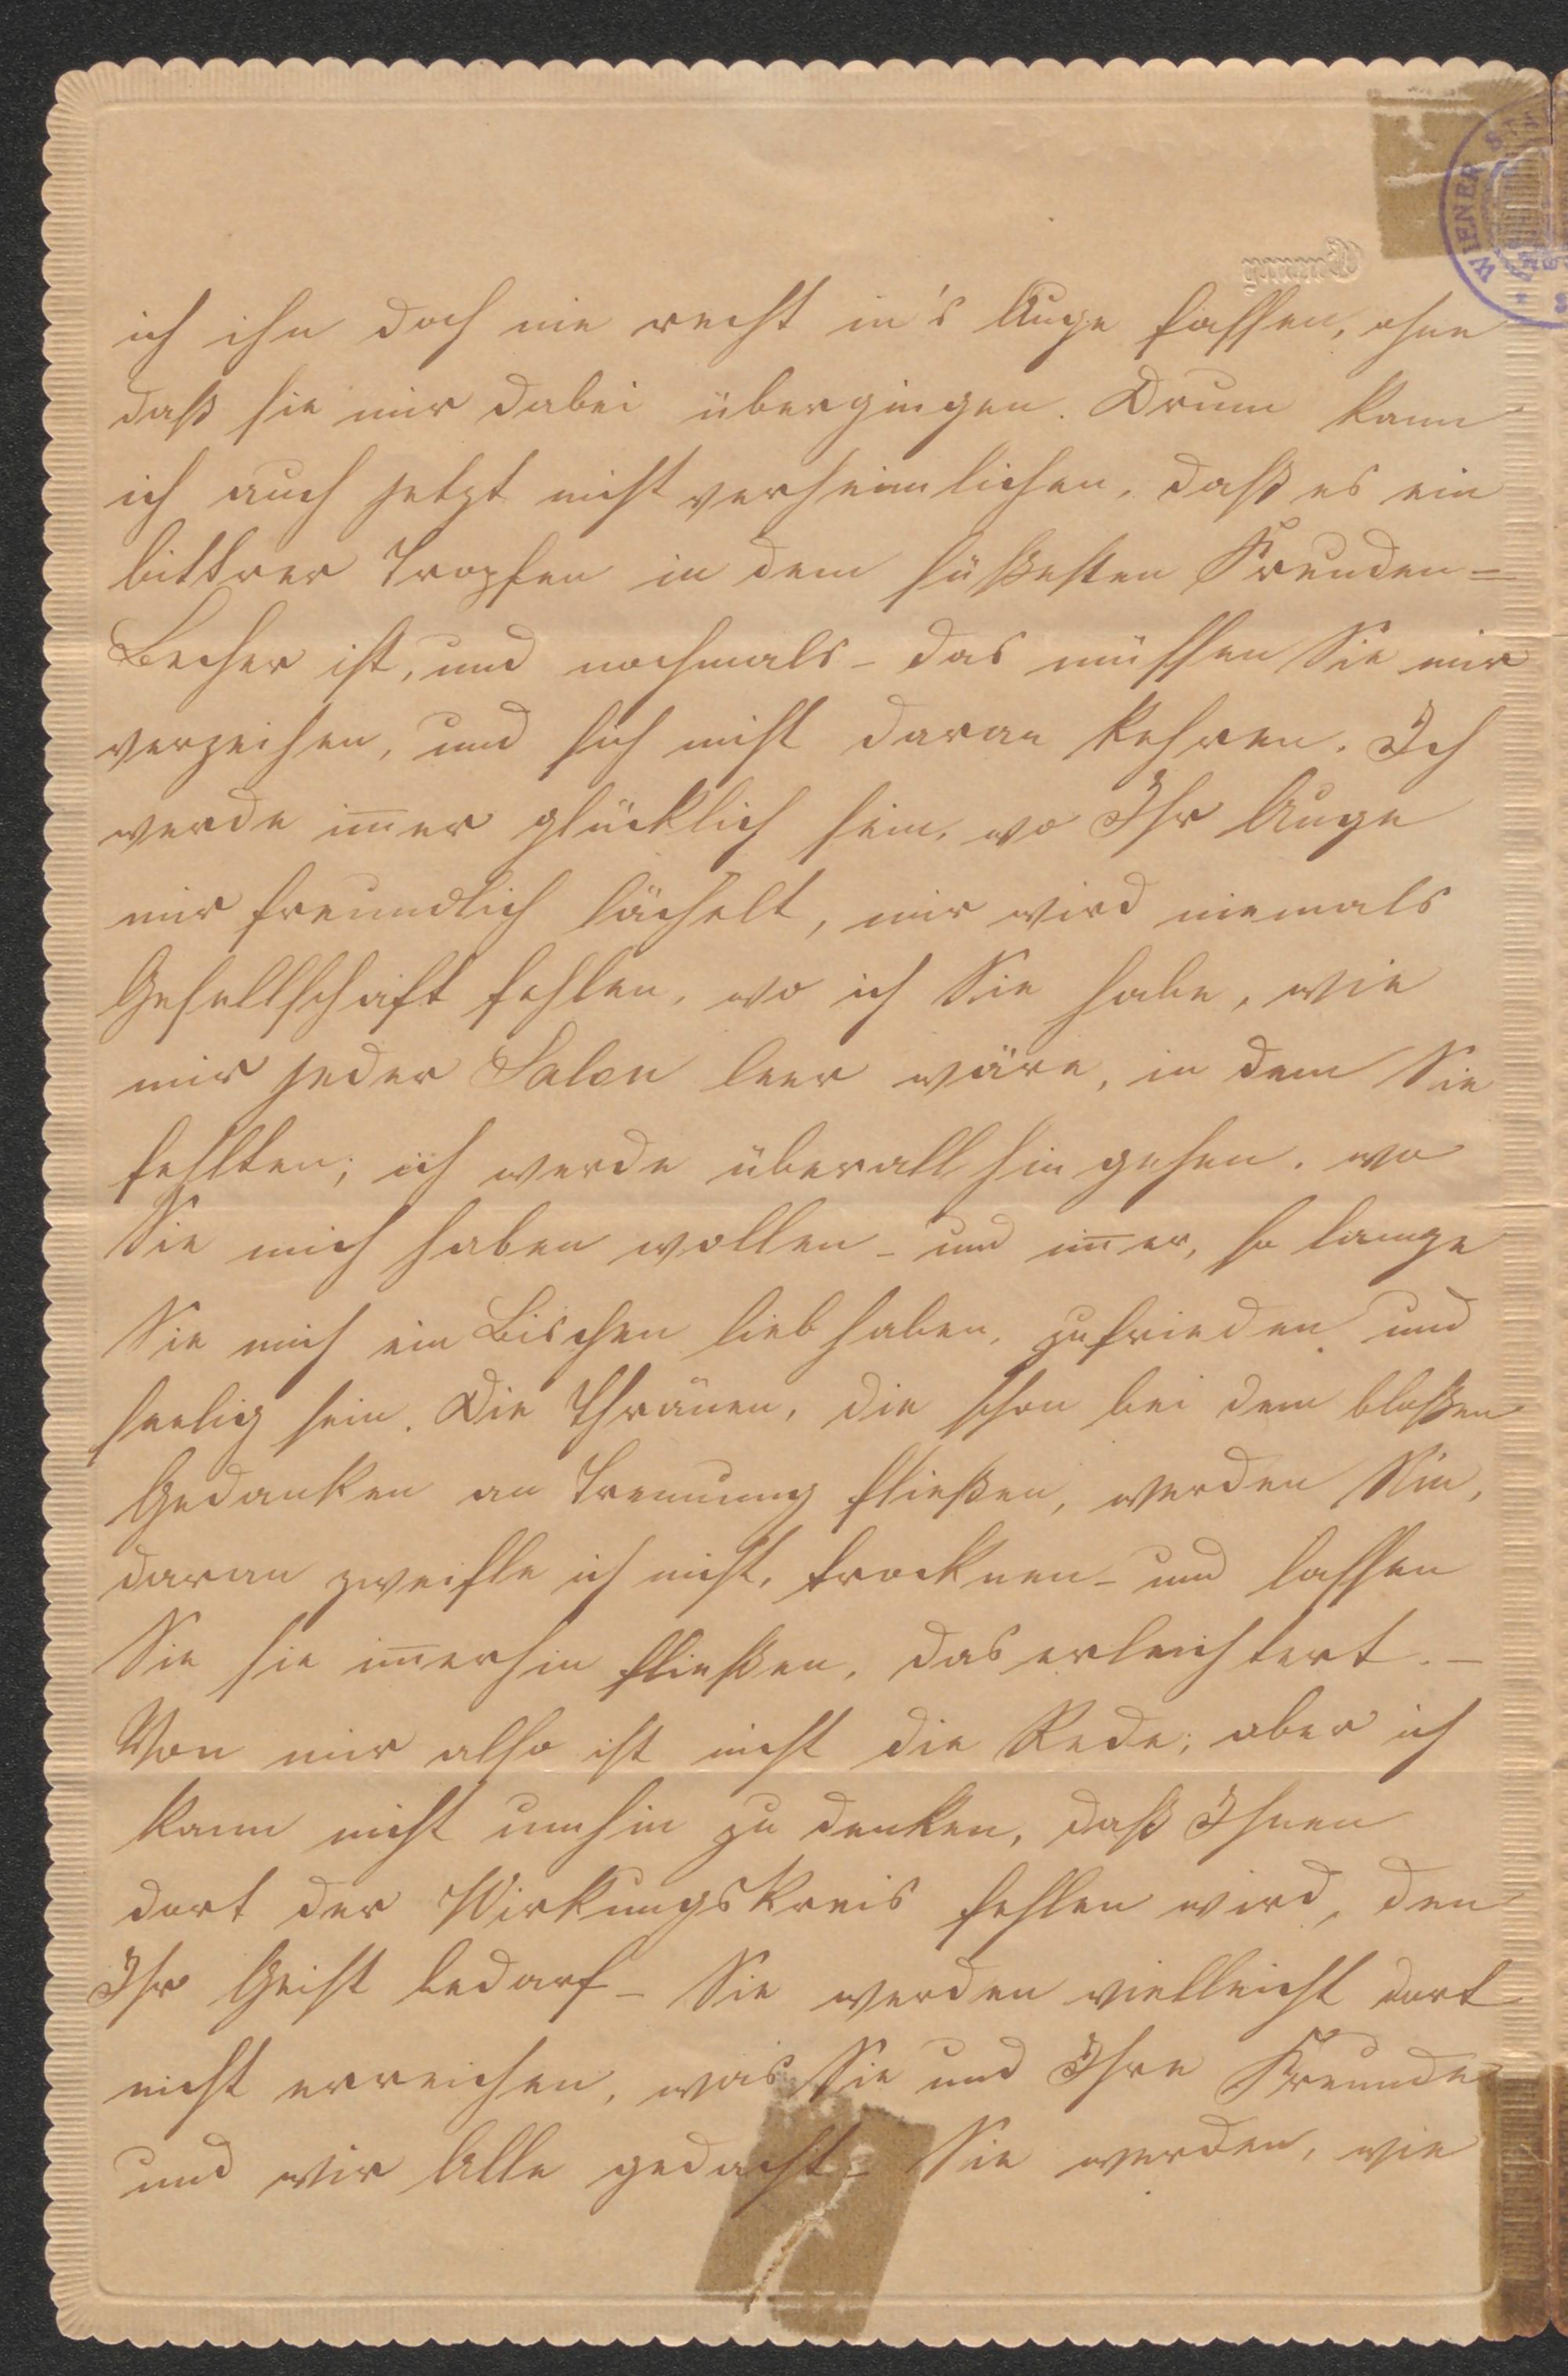 WIENER
ich ihn doch nie recht in's Auge fassen, ohne
daß sie mir dabei übergingen. Drum kann
ich auch jetzt nicht verheimlichen, daß es ein
bittrer Tropfen in dem süßesten Freuden=
Becher ist, und nochmals – das müssen Sie mir
verzeihen, und sich nicht daran kehren. Ich
werde im̅er glücklich sein, wo Ihr Auge
mir freundlich lächelt, mir wird niemals
Gesellschaft fehlen, wo ich Sie habe, wie
mir jeder Salon leer wäre, in dem Sie
fehlten; ich werde überall hin gehen, wo
Sie mich haben wollen – und im̅er, so lange
Sie mich ein Bischen lieb haben, zufrieden und
seelig sein. Die Thränen, die schon bei dem bloßen
Gedanken an Trennung fließen, werden Sie,
daran zweifle ich nicht, trocknen – und lassen
Sie sie im̅erhin fließen, das erleichtert. –
Von mir also ist nicht die Rede; aber ich
kann nicht umhin zu denken, daß Ihnen
dort der Wirkungskreis fehlen wird, den
Ihr Geist bedarf – Sie werden vielleicht dort
nicht erreichen, was Sie und Ihre Freunde
und wir Alle gedacht – Sie werden, wie